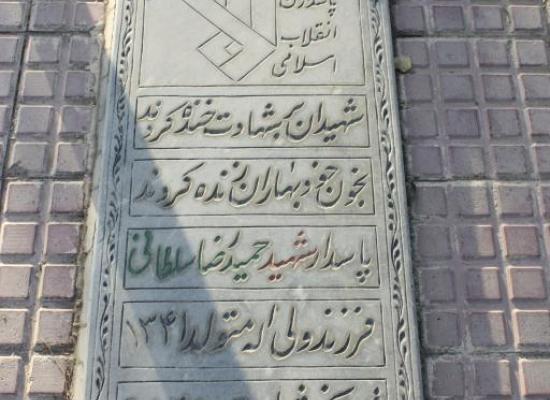 پاسداران
انقلاب
اسلامی
شهیدان بر شهادت خنده کردند
بخون خود بهاران زنده کردند
پاسدار شهید حمیدرضا سلطانی
فرزند ولی اله متولد ۱۳۴۱